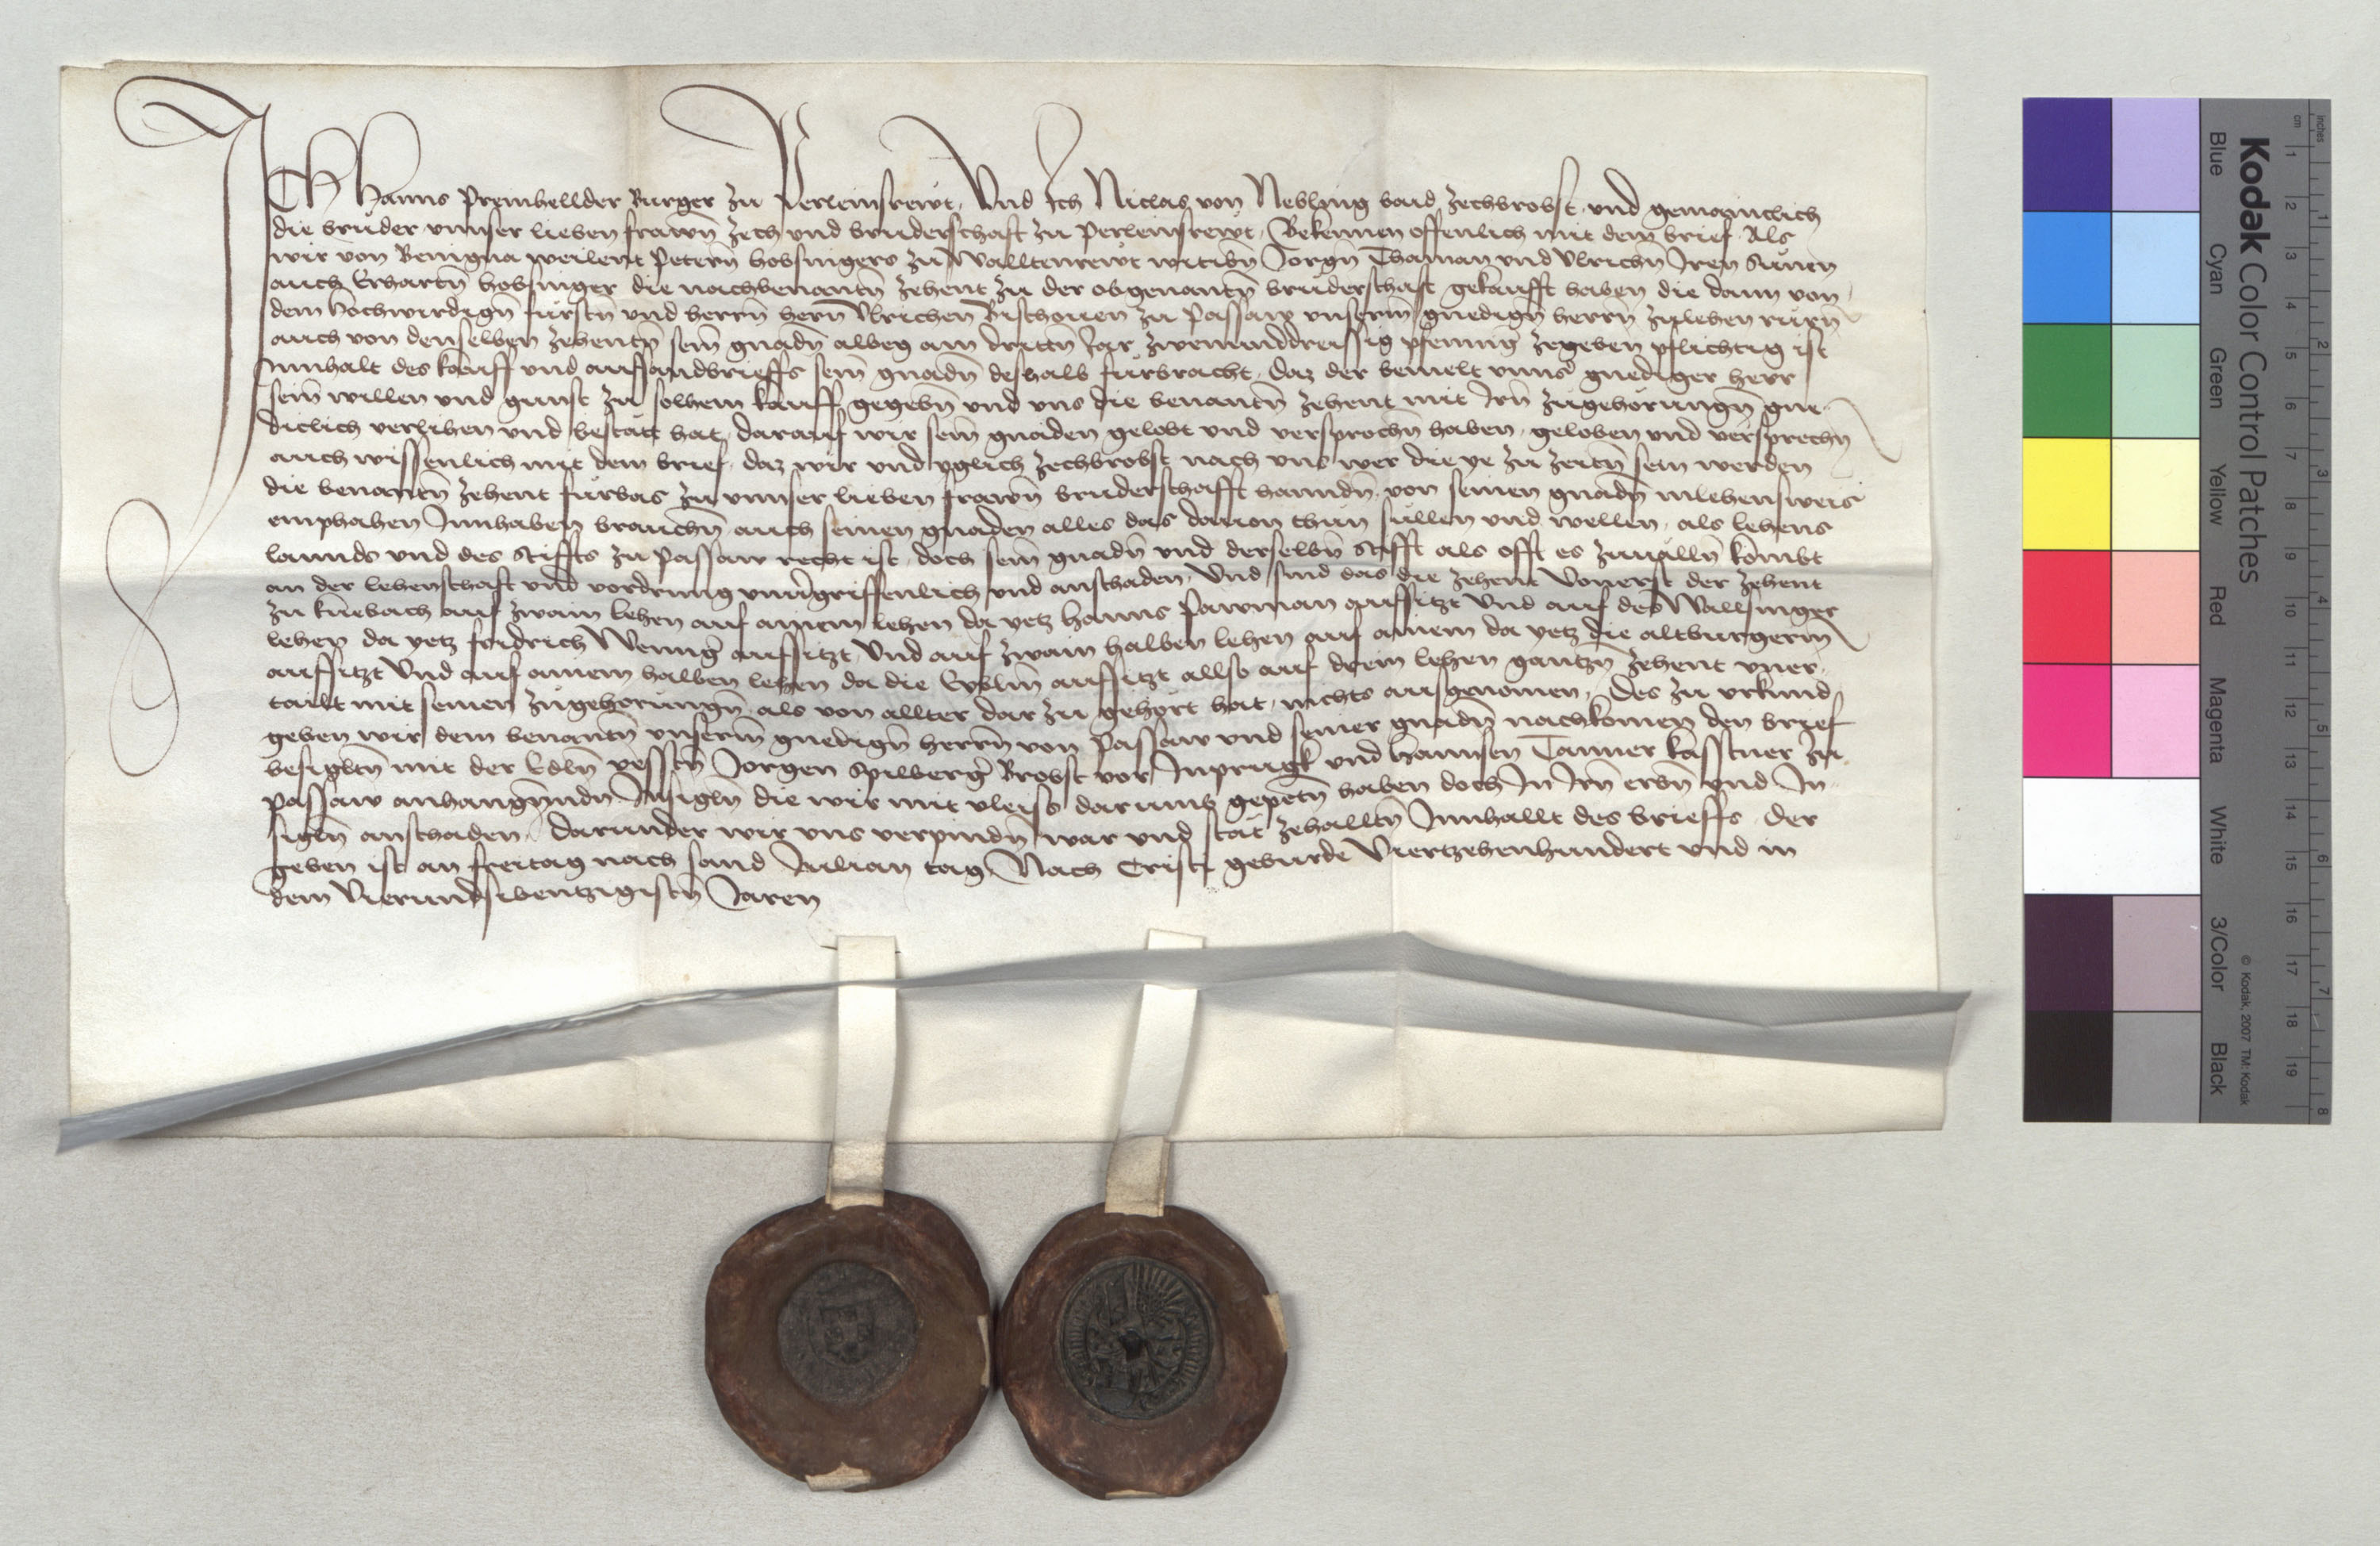 ICH Hanns Preinhellder Burger zu Perleinsrewt, Und Ich Niclas von Nebling baid zechbrobst und gemainclich
die bruder unnser lieben frawn̄ zech und bruderschaft zu Perleinsrewt, Bekennen offenlich mit dem brief Als
wir von Benigna weilent Petern̄ hobsingers zu Walltenrewt witibn̄ Jorgn̄ Thaman und Ulrichn̄ Iren Sůnen
auch Erhartn̄ hobsinger die nachbenantn̄ zehent zu der obgenantn̄ bruderschaft gekaufft haben die dann von
dem hochwirdign̄ fürstn̄ und herrn̄ hern̄ Ulrichen Bischouen zu Passaw unserm̄ gnedign̄ herrn̄ zulehen rürn̄
auch von denselben zehentn̄ sein̄ gnadn̄ albeg am drittn̄ Jar zwenunddreissig pfenning zegeben pflichtig ist
Innhalt des kauff und aufsandbrieffs sein̄ gnadn̄ deshalb fürbracht, daz der bemelt unns̄ gnediger herr
sein̄ willen und gunst zu solhem kauff gegebn̄ und uns die benantn̄ zehent mit Irn̄ zugehorungn̄ gne-
diclich verlihen und bestatt hat, darauf wir sein̄ gnaden gelobt und versprochn̄ haben, geloben und versprechn̄
auch wissenlich mit dem brief, daz wir und yglich zechbrobst nach uns wer die ye zu zeitn̄ sein werden
die benantn̄ zehent fürbas zu unnser lieben frawn̄ bruderschafft hanndn̄ von seinen gnadn̄ inlehensweis
emphahen Innhaben brauchn̄ auch seinen gnaden alles das dauon thun sullen und wellen, als lehens
lannds und des Stiffts zu Passaw recht ist, doch sein̄ gnadn̄ und derselbn̄ Stifft als offt es zuuälln̄ kombt
an der lehenschaft und vordrung unu̇griffenlich und anschaden, Und sind das die zehent Vonerst der zehent
zu kuebach auf zwain lehen auf ainem lehen da yetz hanns Pawman aufsitzt Und auf des Wallsinger
lehen da yetz fridrich Wennḡ aufsitzt, Und auf zwain halben lehen auf ainem da yetz die altburgerin
aufsitzt Und auf ainem halben lehen da die Eyblin̄ aufsitzt allso auf drein lehen gantzn̄ zehent uner-
tailt mit seinen zugehorungn̄ als von allter dar zu gehört hat, nichts ausgenomen, Des zu urkund
geben wir dem benantn̄ unserm̄ gnedign̄ herrn̄ von Passaw und seiner gnadn̄ nachkomen den brief
besigltn̄ mit der Edln̄ vesstn̄ Jorgen Spilberḡ Brobst vor Inprugk und hannsen Tanner kasstner zu
Passaw anhangenndn̄ Insigln̄ die wir mit vleiss darumb gepetn̄ haben doch In Irn̄ erbn̄ und In-
sigln̄ anschaden, darunder wir uns verpindn̄ war und stät zehalltn̄ Innhallt des brieffs, Der
geben ist an freitag nach sand Julian tag, Nach Cristi geburde Viertzehenhundert und in
dem Vierundsibentzigistn̄ Jaren
Kodak Color Control Patches
Blue Cyan Green Yellow Red Magenta White 3/Color Black
© Kodak, 2007 TM: Kodak
cm 1 2 3 4 5 6 7 8 9 10 11 12 13 14 15 16 17 18 19
inches 1 2 3 4 5 6 7 8